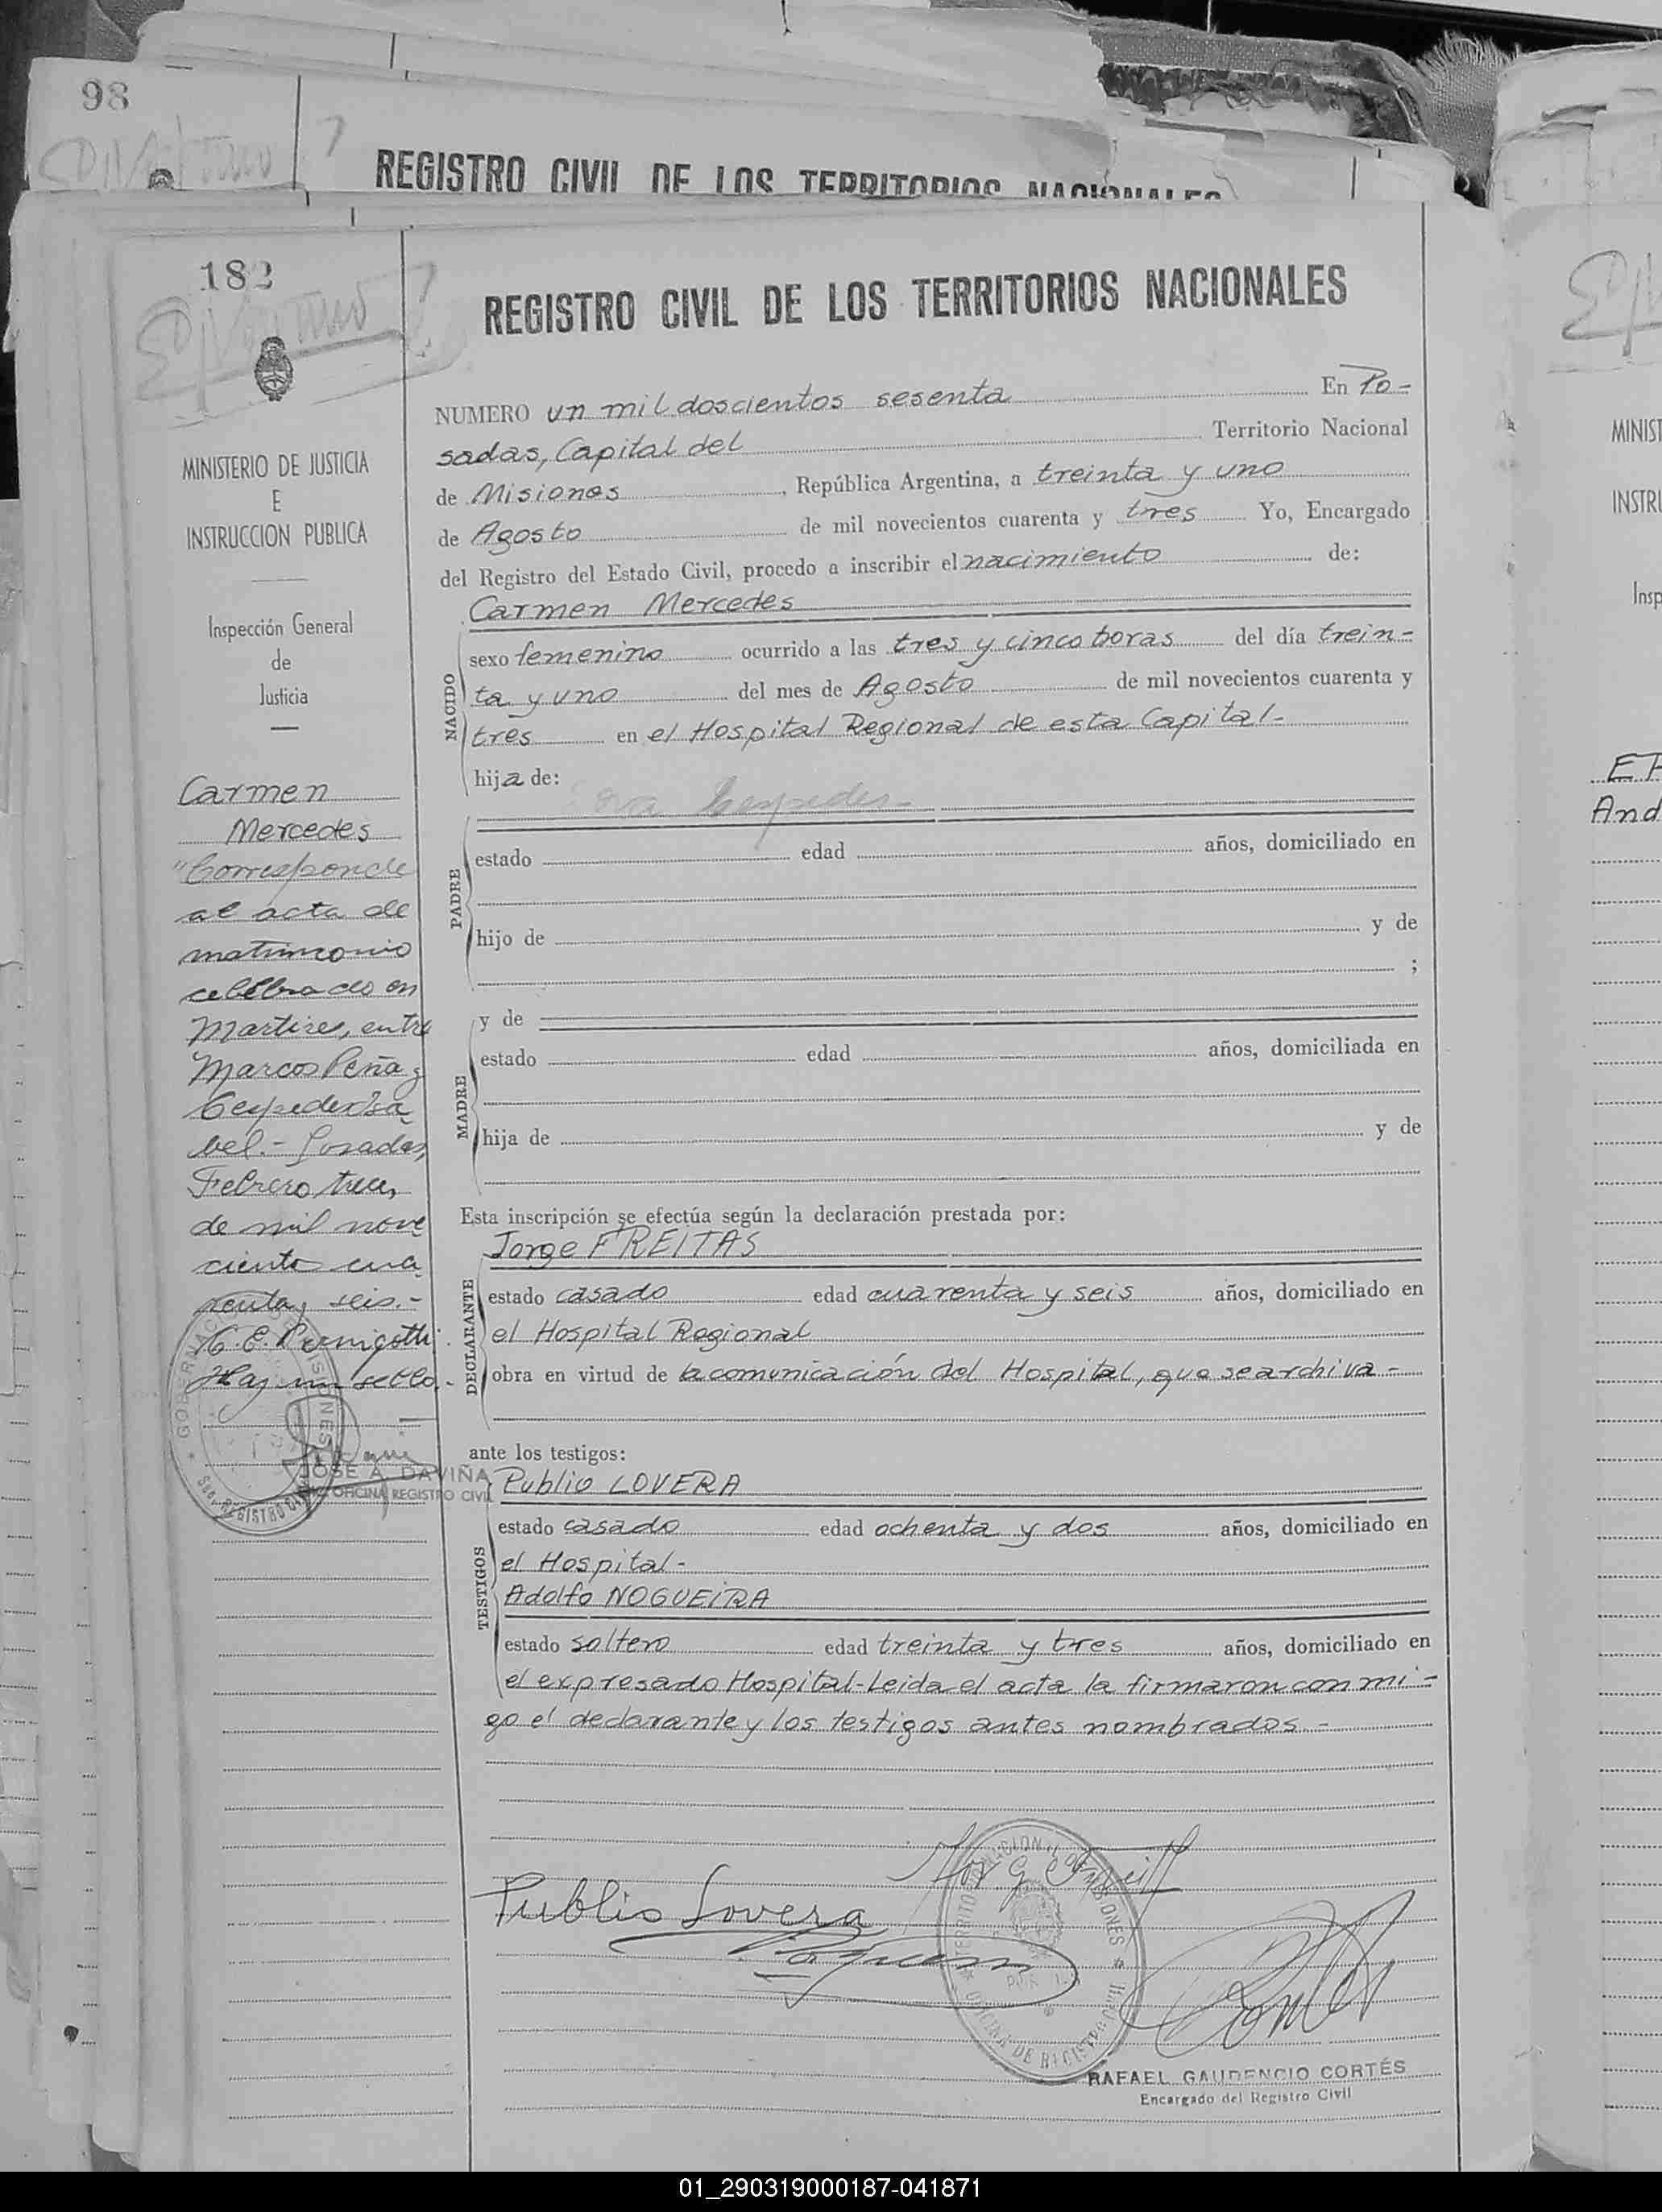 98
REGISTRO CIVIL DE LOS TERRITORIOS NACIONALES
182
REGISTRO CIVIL DE LOS TERRITORIOS NACIONALES
MINISTERIO DE JUSTICIA
E
INSTRUCCION PUBLICA
Inspección General
de
Justicia
Carmen
Mercedes
"Corresponde
al acta de
matrimonio
celebrado en
Martires, entre
Marcos Peña y
Cespedes Isa
bel.- Posadas,
Febrero trece,
de mil nove
ciento cua
renta y seis.-
C. E. Pernigotti
Hay un sello.-
JOSE A. DAVIÑA
OFICINA REGISTRO CIVIL
NUMERO un mil doscientos sesenta En Po-
sadas, Capital del Territorio Nacional
de Misiones, República Argentina, a treinta y uno
de Agosto de mil novecientos cuarenta y tres Yo, Encargado
del Registro del Estado Civil, procedo a inscribir el nacimiento de:
Carmen Mercedes
NACIDO
sexo femenino ocurrido a las tres y cinco horas del día trein-
ta y uno del mes de Agosto de mil novecientos cuarenta y
tres en el Hospital Regional de esta Capital-
hija de:
Cespedes
PADRE
estado edad años, domiciliado en
hijo de y de
;
y de
MADRE
estado edad años, domiciliada en
hija de y de
Esta inscripción se efectúa según la declaración prestada por:
Jorge FREITAS
DECLARANTE
estado casado edad cuarenta y seis años, domiciliado en
el Hospital Regional
obra en virtud de la comunicación del Hospital, que se archiva-
ante los testigos:
Publio LOVERA
TESTIGOS
estado casado edad ochenta y dos años, domiciliado en
el Hospital-
Adolfo NOGUEIRA
estado soltero edad treinta y tres años, domiciliado en
el expresado Hospital-Leida el acta la firmaron conmi-
go el declarante y los testigos antes nombrados.-
Publio Lovera
RAFAEL GAUDENCIO CORTÉS
Encargado del Registro Civil
MINIST
INSTRU
Insp
And
01_290319000187-041871